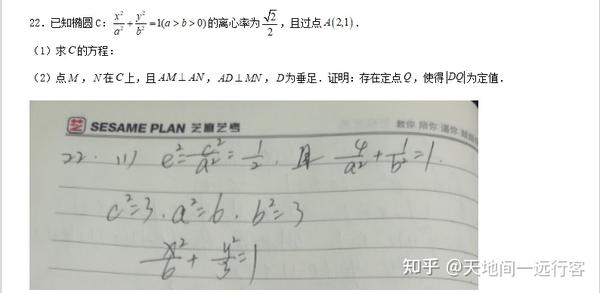 22．已知椭圆C：x²/a²+y²/b²=1(a>b>0)的离心率为√2/2，且过点A(2,1)．
（1）求C的方程：
（2）点M，N在C上，且AM⊥AN，AD⊥MN，D为垂足．证明：存在定点Q，使得|DQ|为定值．
芝 SESAME PLAN 芝麻艺考
教你 陪你 逼你
22. (1) e²=c²/a²=1/2. 且 4/a²+1/b²=1.
c²=3. a²=6. b²=3
x²/6+y²/3=1
知乎 @天地间一远行客